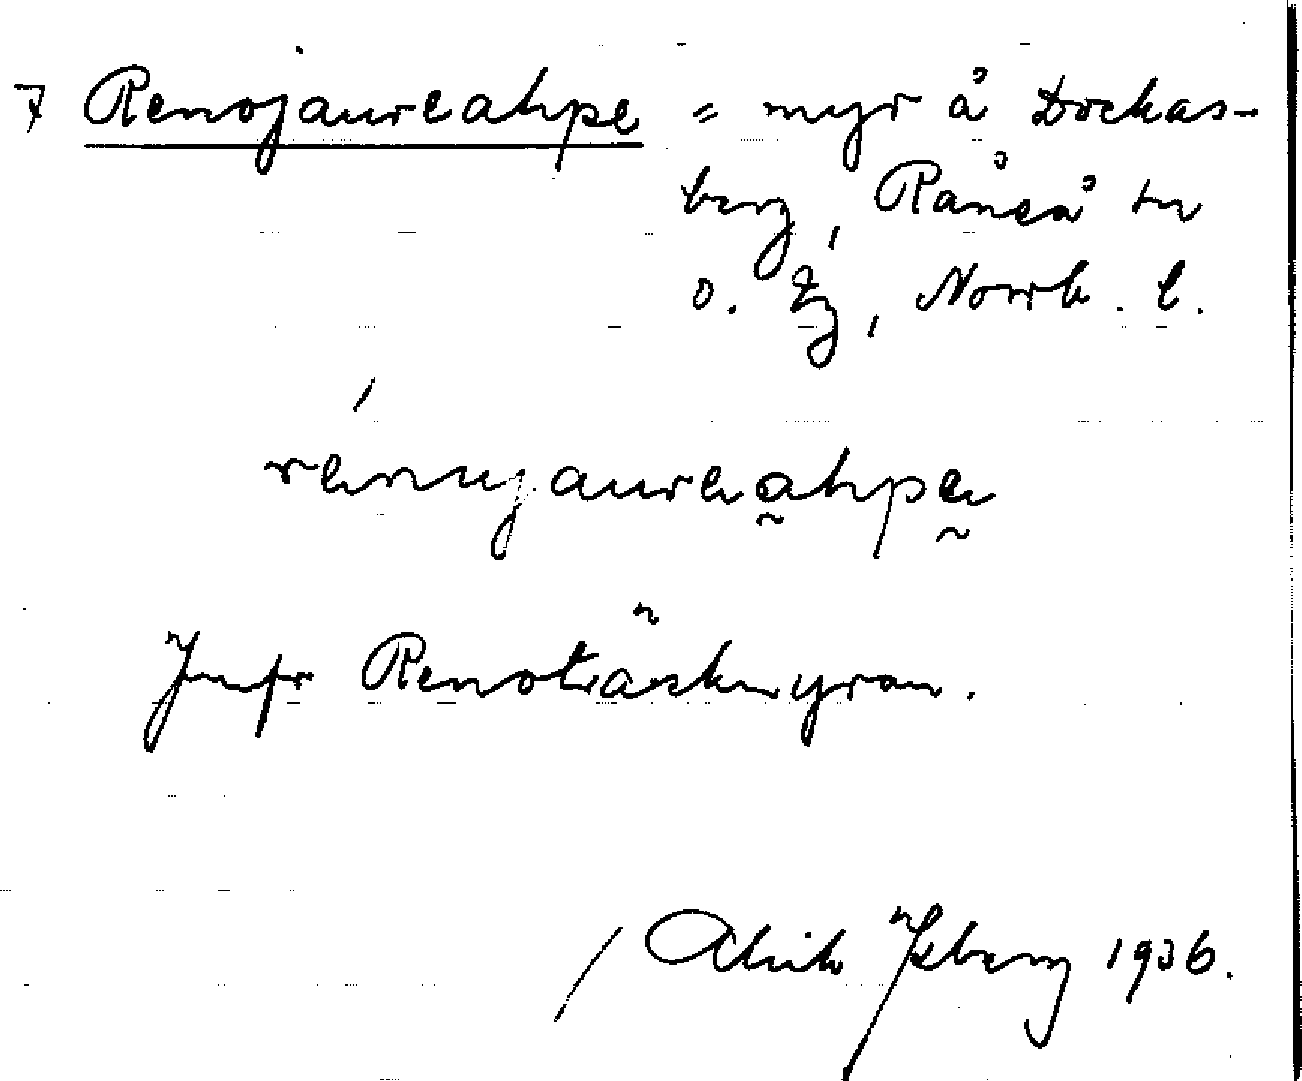 7 Renojaureahpe = myr å Dockas-
berg, Råneå sn
o. tg, Norrb. l.
renujaureahpe
Jmfr Renoträskmyran.
/ Alrik Isberg 1936.